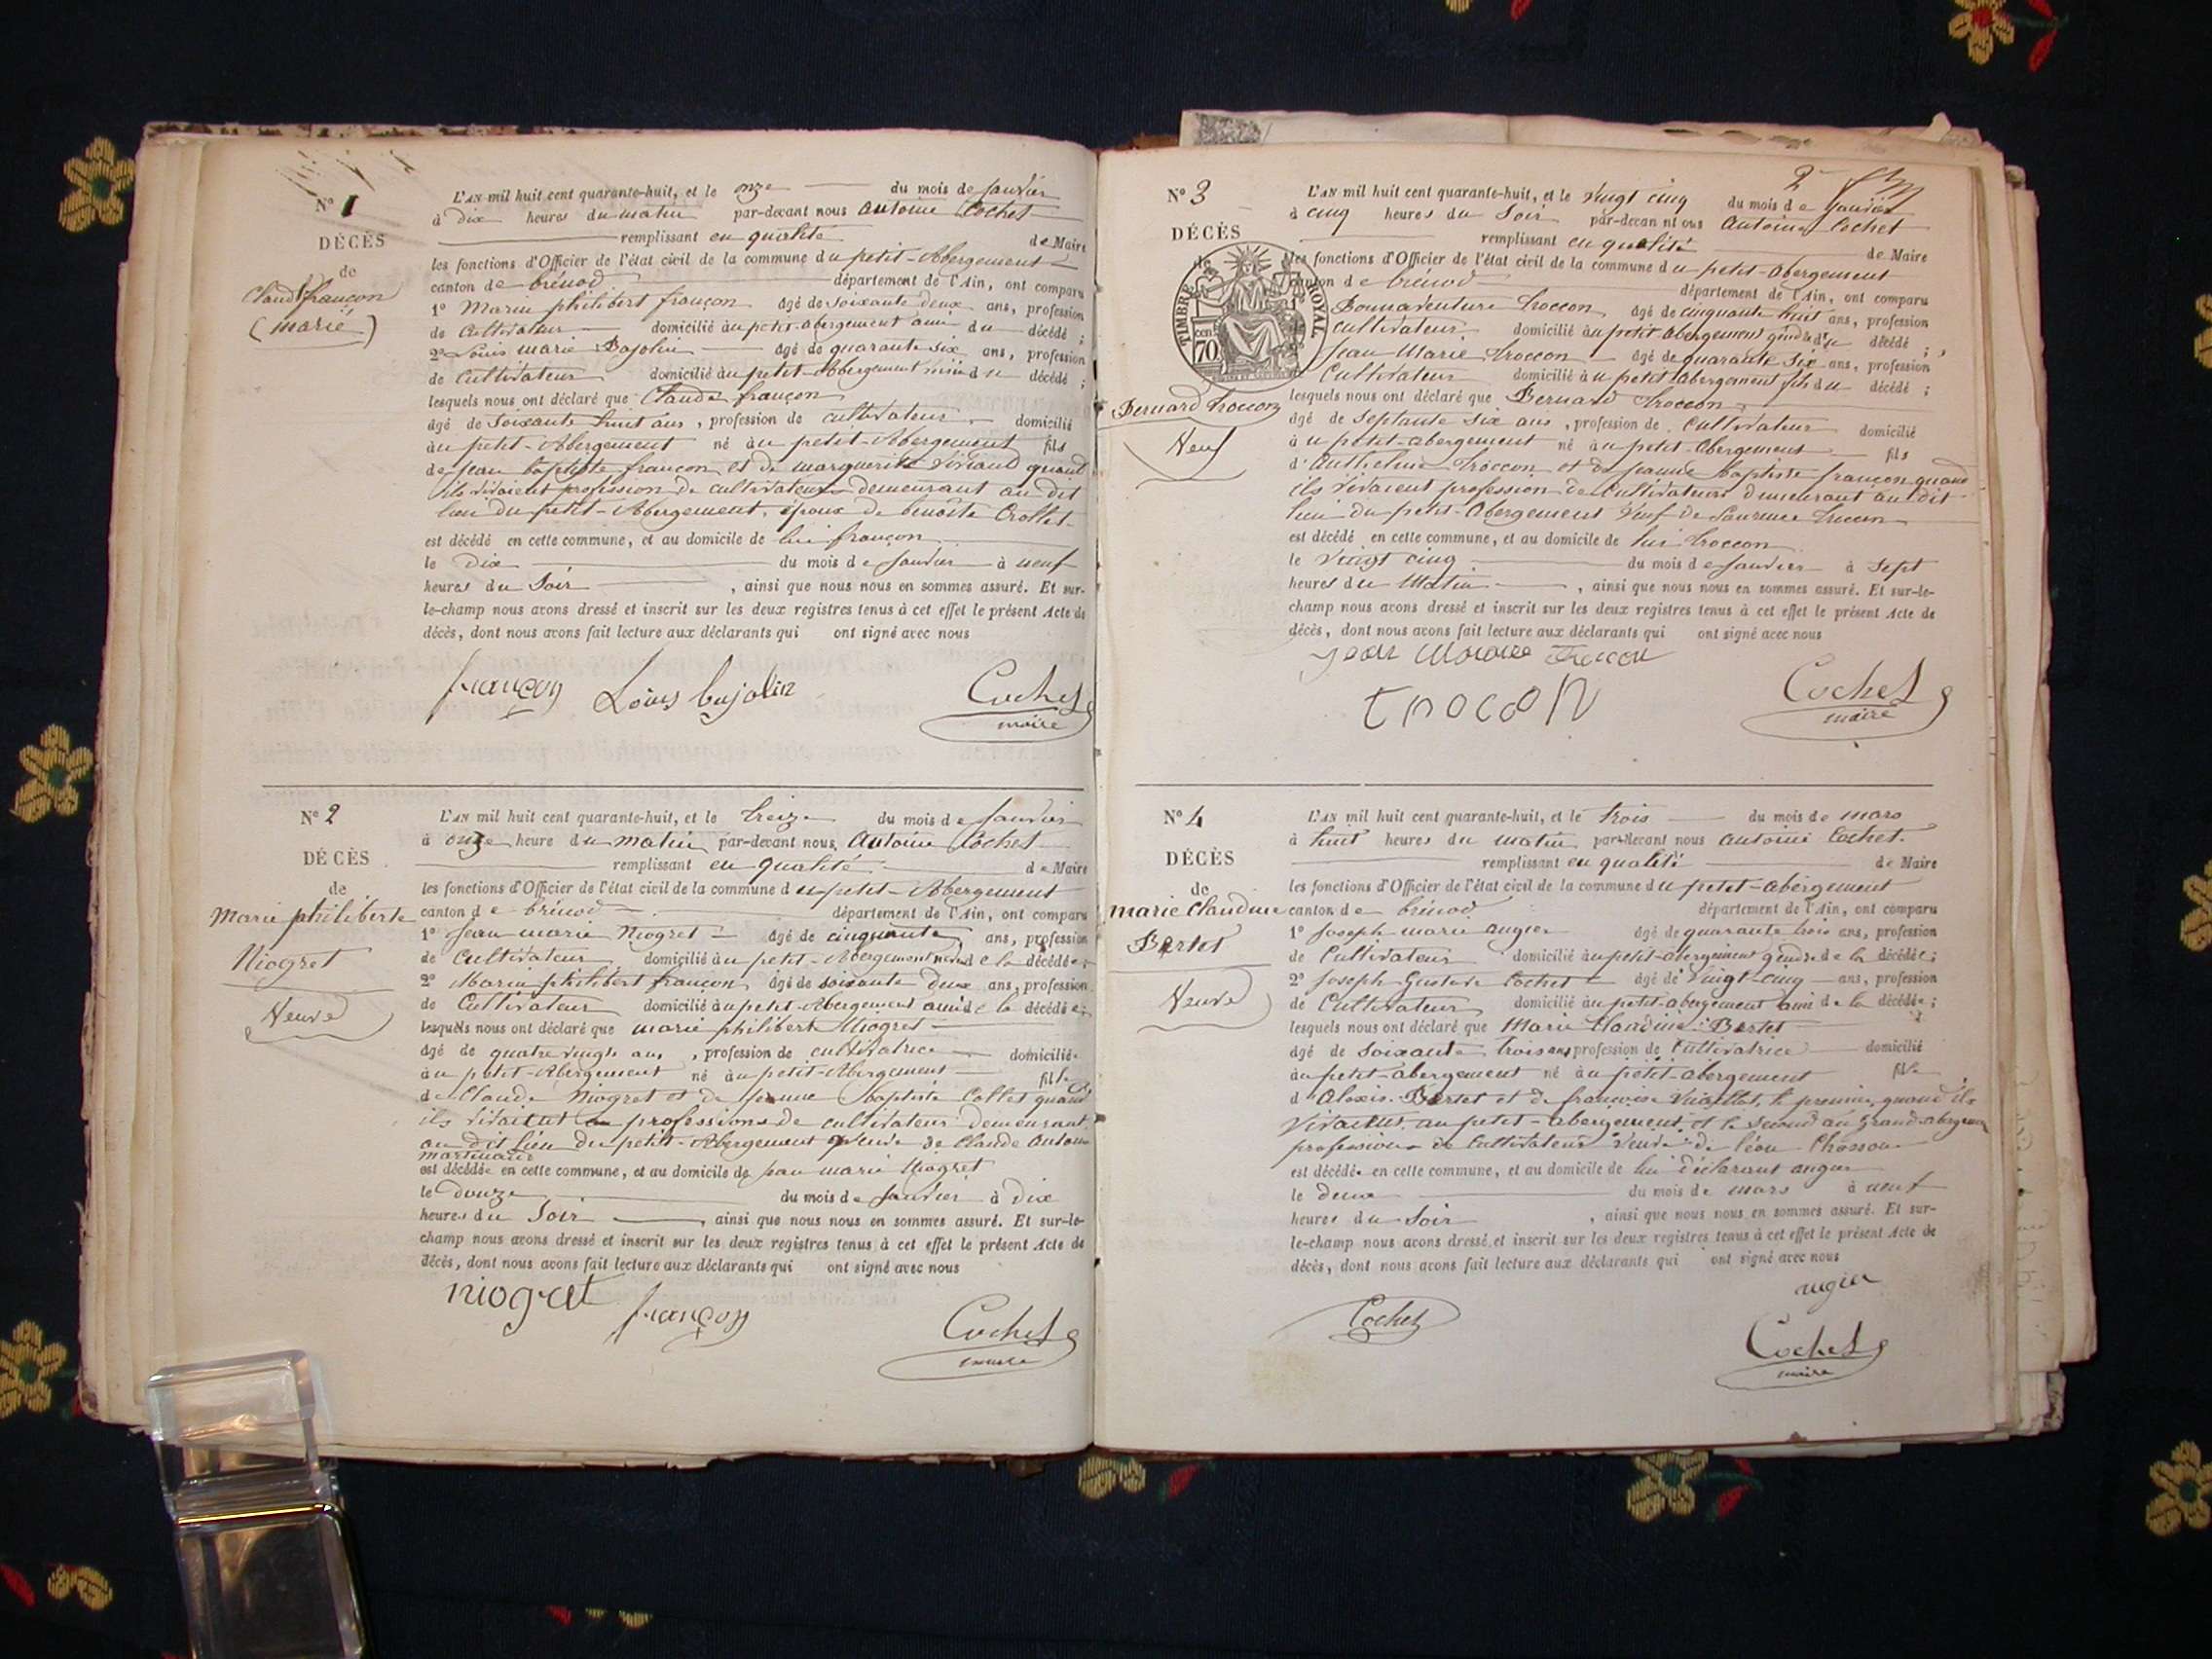 N° 1
DÉCÈS
de
Claude françon
(marié)
L'AN mil huit cent quarante-huit, et le onze du mois de janvier
à dix heures du matin par-devant nous Antoine Cochet
remplissant en qualité de Maire
les fonctions d'Officier de l'état civil de la commune du petit-Abergement
canton de brénod département de l'Ain, ont comparu
1° Marin philibert françon âgé de soixante deux ans, profession
de Cultivateur domicilié au petit-abergement ami du décédé ;
2° Louis marie Bajolin âgé de quarante six ans, profession
de Cultivateur domicilié au petit-Abergement du décédé ;
lesquels nous ont déclaré que Claude françon
âgé de soixante huit ans, profession de cultivateur domicilié
au petit-Abergement né au petit-Abergement fils
de jean baptiste françon et de marguerite Viviand quand
ils vivaient profession de cultivateurs demeurant au dit
lieu du petit-Abergement, époux de benoite Crollet
est décédé en cette commune, et au domicile de lui françon
le Dix du mois de janvier à neuf
heures du Soir, ainsi que nous nous en sommes assuré. Et sur-
le-champ nous avons dressé et inscrit sur les deux registres tenus à cet effet le présent Acte de
décès, dont nous avons fait lecture aux déclarants qui ont signé avec nous
françon Louis bajolin Cochet
maire
N° 2
DÉCÈS
de
Marie philiberte
Niogret
Veuve
L'AN mil huit cent quarante-huit, et le treize du mois de janvier
à onze heure du matin par-devant nous Antoine Cochet
remplissant en qualité de Maire
les fonctions d'Officier de l'état civil de la commune du petit-Abergement
canton de brénod département de l'Ain, ont comparu
1° Jean marie Niogret âgé de cinquante ans, profession
de Cultivateur domicilié au petit-Abergement de la décédée ;
2° Marin philibert françon âgé de soixante deux ans, profession
de Cultivateur domicilié au petit-Abergement ami de la décédée ;
lesquels nous ont déclaré que marie philibert Niogret
âgé de quatre vingts ans, profession de cultivatrice domiciliée
au petit-Abergement né au petit-Abergement fille
de Claude Niogret et de jeanne baptiste Collet quand
ils vivaient professions de cultivateurs demeurant
au dit lieu du petit-Abergement veuve de Claude Antoine
martinand
est décédée en cette commune, et au domicile de jean marie Niogret
le douze du mois de janvier à dix
heures du Soir, ainsi que nous nous en sommes assuré. Et sur-le-
champ nous avons dressé et inscrit sur les deux registres tenus à cet effet le présent Acte de
décès, dont nous avons fait lecture aux déclarants qui ont signé avec nous
niogret françon Cochet
maire
2
N° 3
DÉCÈS
de
TIMBRE ROYAL
cen 70
Bernard troccon
Veuf
L'AN mil huit cent quarante-huit, et le vingt cinq du mois de janvier
à cinq heures du Soir par-devant nous Antoine Cochet
remplissant en qualité de Maire
les fonctions d'Officier de l'état civil de la commune du petit-abergement
canton de brénod département de l'Ain, ont comparu
Bonnaventure troccon âgé de cinquante huit ans, profession
Cultivateur domicilié au petit abergement gendre du décédé ;
Jean Marie troccon âgé de quarante six ans, profession
Cultivateur domicilié au petit abergement fils du décédé ;
lesquels nous ont déclaré que Bernard troccon
âgé de septante six ans, profession de Cultivateur domicilié
au petit-abergement né au petit-abergement fils
d'Anthelme troccon et de jeanne baptiste françon quand
ils vivaient profession de Cultivateurs demeurant au dit
lieu du petit-abergement veuf de Laurence troccon
est décédé en cette commune, et au domicile de lui troccon
le vingt cinq du mois de janvier à sept
heures du Matin, ainsi que nous nous en sommes assuré. Et sur-le-
champ nous avons dressé et inscrit sur les deux registres tenus à cet effet le présent Acte de
décès, dont nous avons fait lecture aux déclarants qui ont signé avec nous
jean Marie troccon
trocon Cochet
maire
N° 4
DÉCÈS
de
marie Claudine
Bertet
Veuve
L'AN mil huit cent quarante-huit, et le trois du mois de mars
à huit heures du matin par-devant nous antoine Cochet
remplissant en qualité de Maire
les fonctions d'Officier de l'état civil de la commune du petit-abergement
canton de brénod département de l'Ain, ont comparu
1° Joseph marie augier âgé de quarante trois ans, profession
de Cultivateur domicilié au petit-abergement gendre de la décédée ;
2° Joseph Gustave Cochet âgé de vingt-cinq ans, profession
de Cultivateur domicilié au petit-abergement ami de la décédée ;
lesquels nous ont déclaré que Marie Claudine Bertet
âgé de soixante trois ans profession de Cultivatrice domicilié
au petit-abergement né au petit-abergement fille
d'Alexis Bertet et de françoise le premier quand ils
vivaient au petit-abergement et le second au Grand abergement
professions de Cultivateurs veuve de léon Chosson
est décédée en cette commune, et au domicile de lui déclarant augier
le deux du mois de mars à neuf
heures du Soir, ainsi que nous nous en sommes assuré. Et sur-
le-champ nous avons dressé et inscrit sur les deux registres tenus à cet effet le présent Acte de
décès, dont nous avons fait lecture aux déclarants qui ont signé avec nous
augier
Cochet Cochet
maire